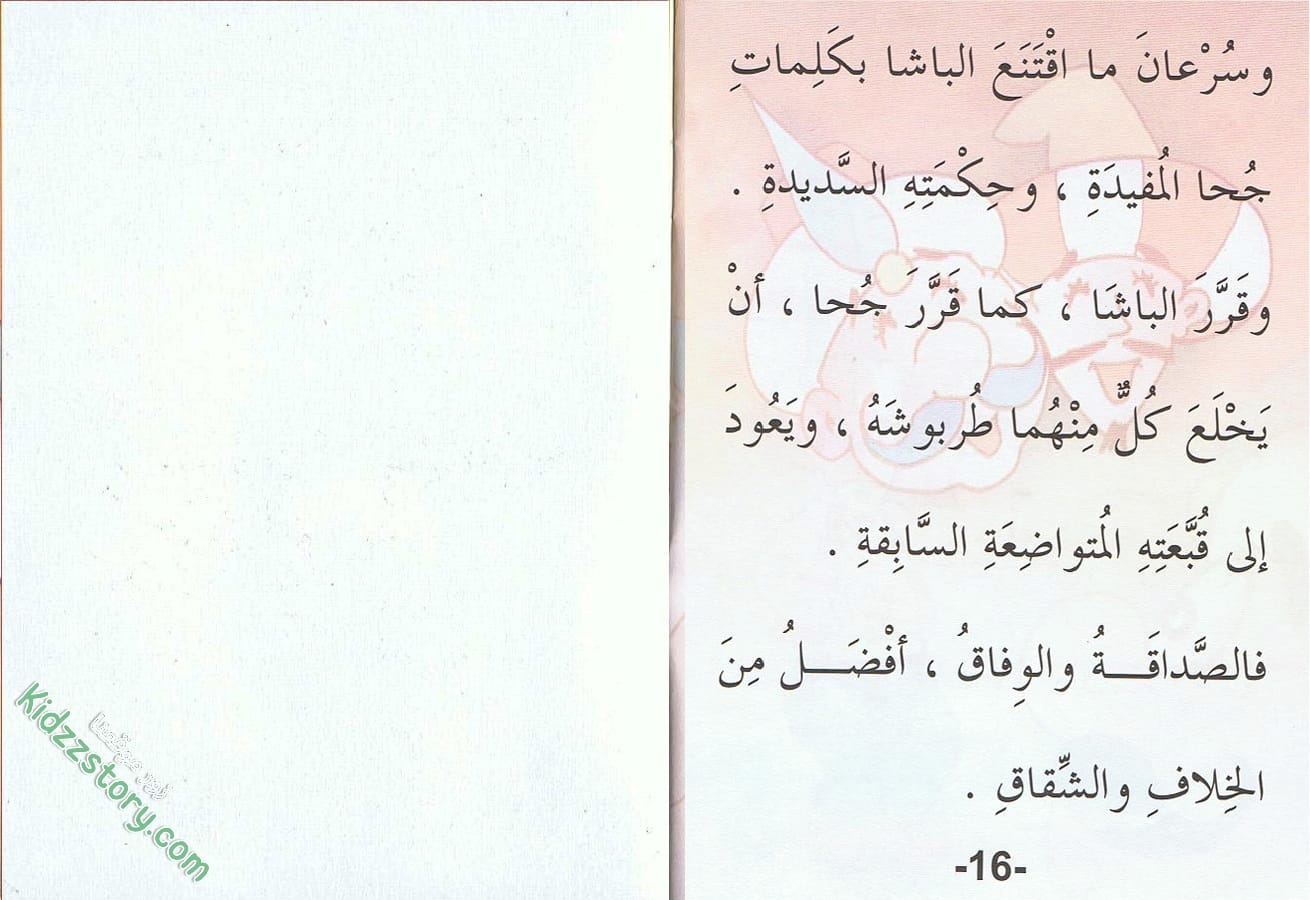 وسُرْعانَ ما اقْتَنَعَ الباشا بكَلِماتِ
جُحا المُفيدَةِ ، وحِكْمَتِهِ السَّديدةِ .
وقَرَّرَ الباشَا ، كما قَرَّرَ جُحا ، أنْ
يَخْلَعَ كُلٌّ مِنْهُما طُربوشَهُ ، ويَعُودَ
إلى قُبَّعَتِهِ المُتواضِعَةِ السَّابِقةِ .
فالصَّداقَـــةُ والوِفاقُ ، أفْضَـــلُ مِنَ
الخِلافِ والشِّقاقِ .
-16-
Kidzzstory.com